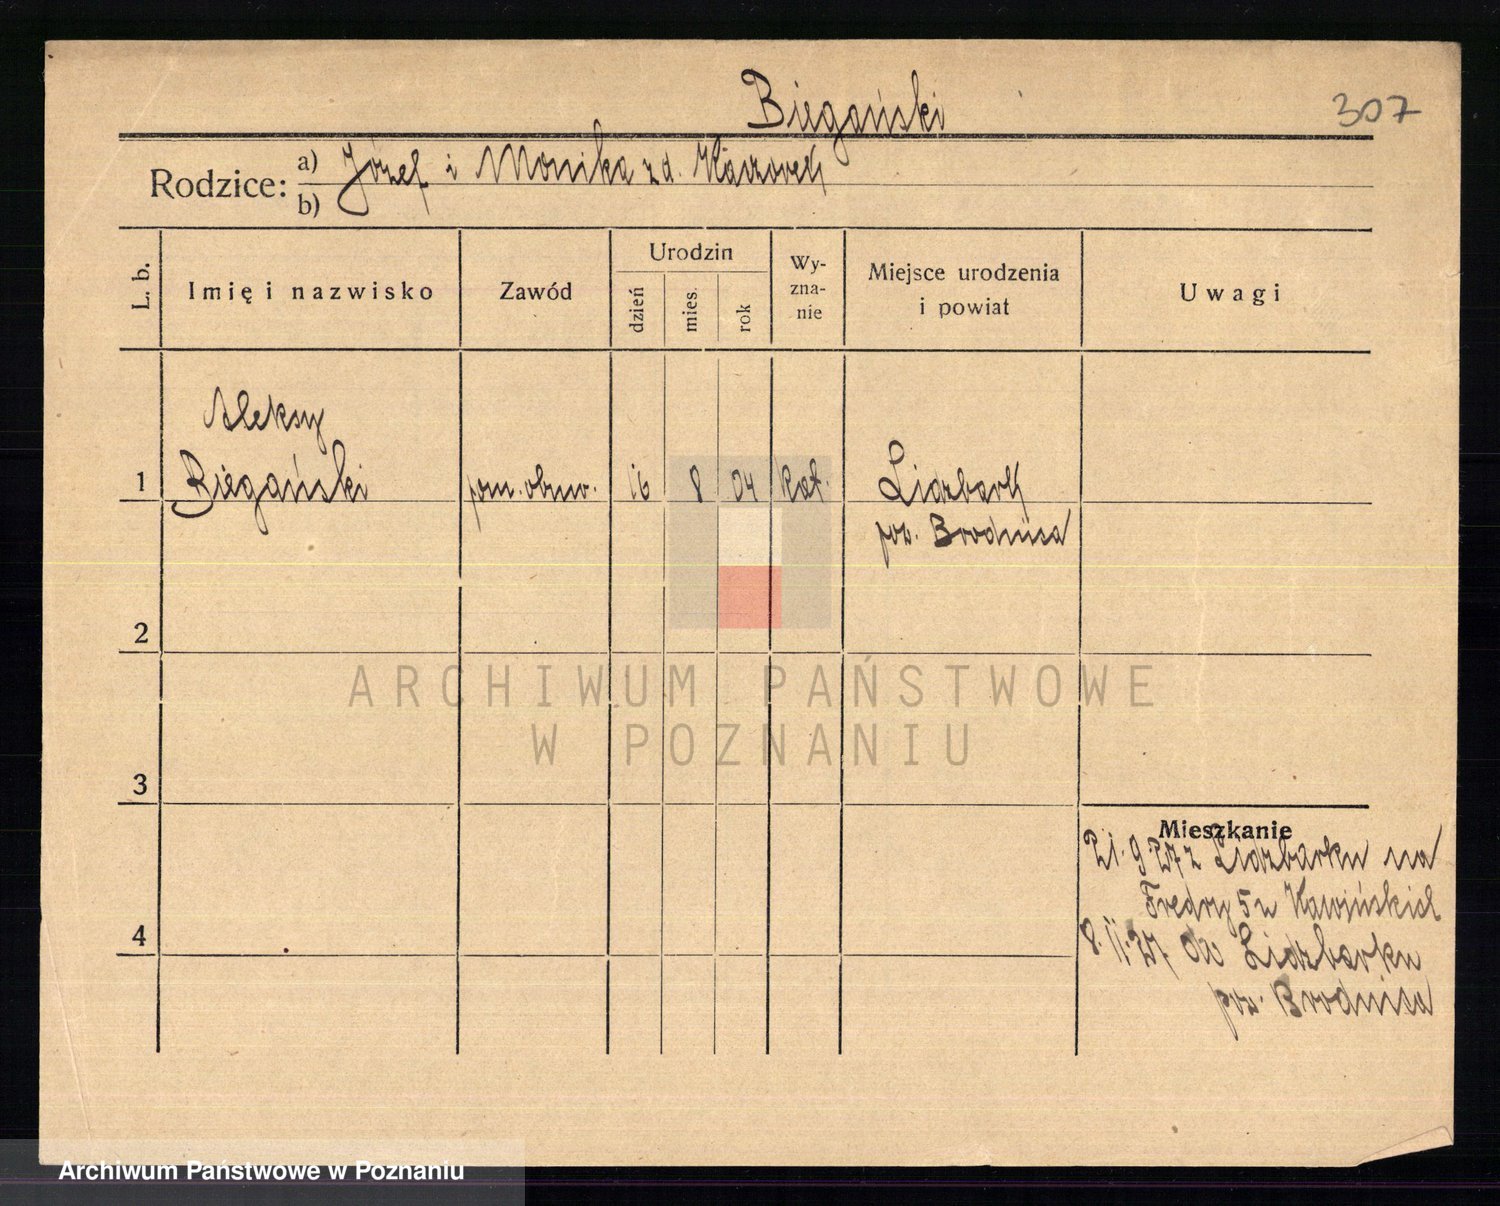 Biegański
307
Rodzice: a) Józef i Monika z d. Kaczorek
b)
L. b.
Imię i nazwisko
Zawód
Urodzin
dzień
mies.
rok
Wy-
zna-
nie
Miejsce urodzenia
i powiat
Uwagi
Aleksy
1 Biegański
16 8 04 kat. Lidzbark
pow. Brodnica
2
3
4
Mieszkanie
21.9.27 z Lidzbarku na
Fredry 5 u
8.11.27 do Lidzbarku
pow. Brodnica
ARCHIWUM PAŃSTWOWE
W POZNANIU
Archiwum Państwowe w Poznaniu